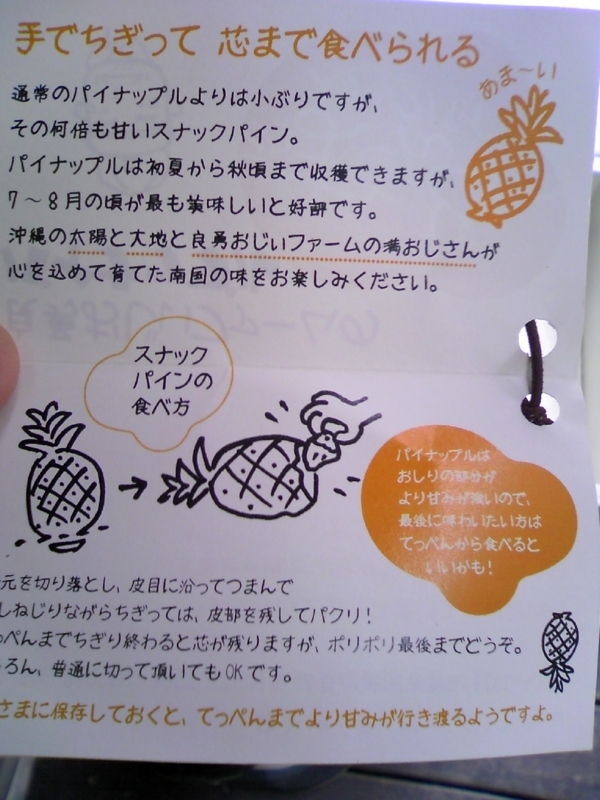 手でちぎって 芯まで食べられる
あま〜い
通常のパイナップルよりは小ぶりですが、
その何倍も甘いスナックパイン。
パイナップルは初夏から秋頃まで収穫できますが、
7〜8月の頃が最も美味しいと好評です。
沖縄の太陽と大地と良勇おじいファームの満おじさんが
心を込めて育てた南国の味をお楽しみください。
スナック
パインの
食べ方
パイナップルは
おしりの部分が
より甘みが強いので、
最後に味わいたい方は
てっぺんから食べると
いいかも!
元を切り落とし、皮目に沿ってつまんで
しねじりながらちぎっては、皮部を残してパクリ!
っぺんまでちぎり終わると芯が残りますが、ポリポリ最後までどうぞ。
ろん、普通に切って頂いてもOKです。
さまに保存しておくと、てっぺんまでより甘みが行き渡るようですよ。